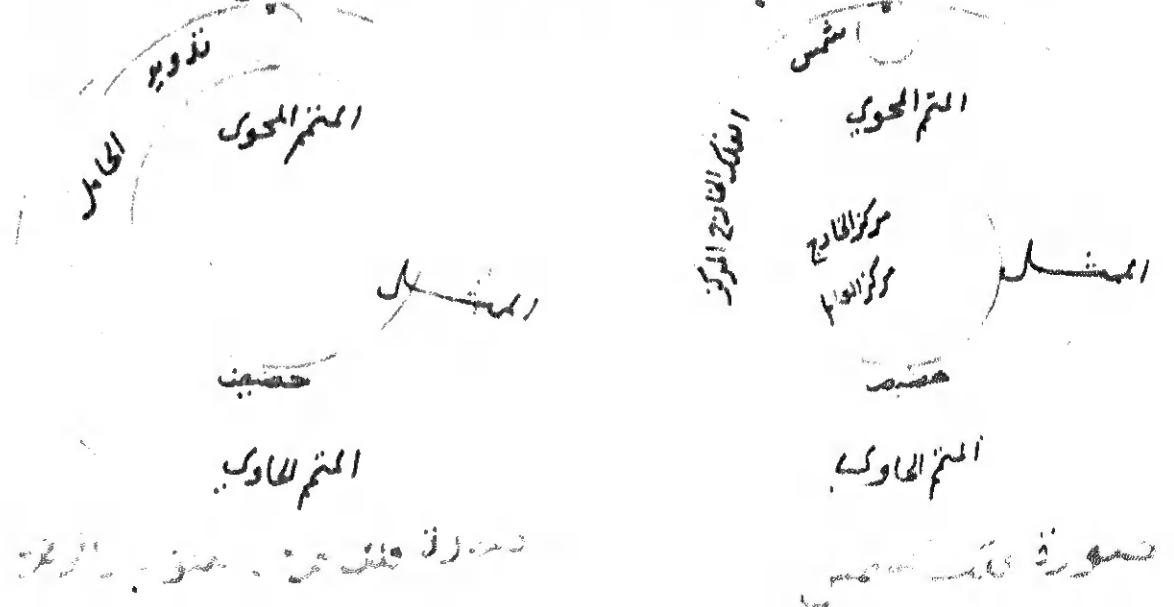 الشمس
المتمم المحوي
الفلك الخارج المركز
مركز الخارج
مركز العالم
الممثــل
حضيض
المتمم الحاوي
صورة فلك الشمس
تدوير
الحامل
المتمم المحوى
الممثــل
حضيض
المتمم الحاوي
صورة فلك